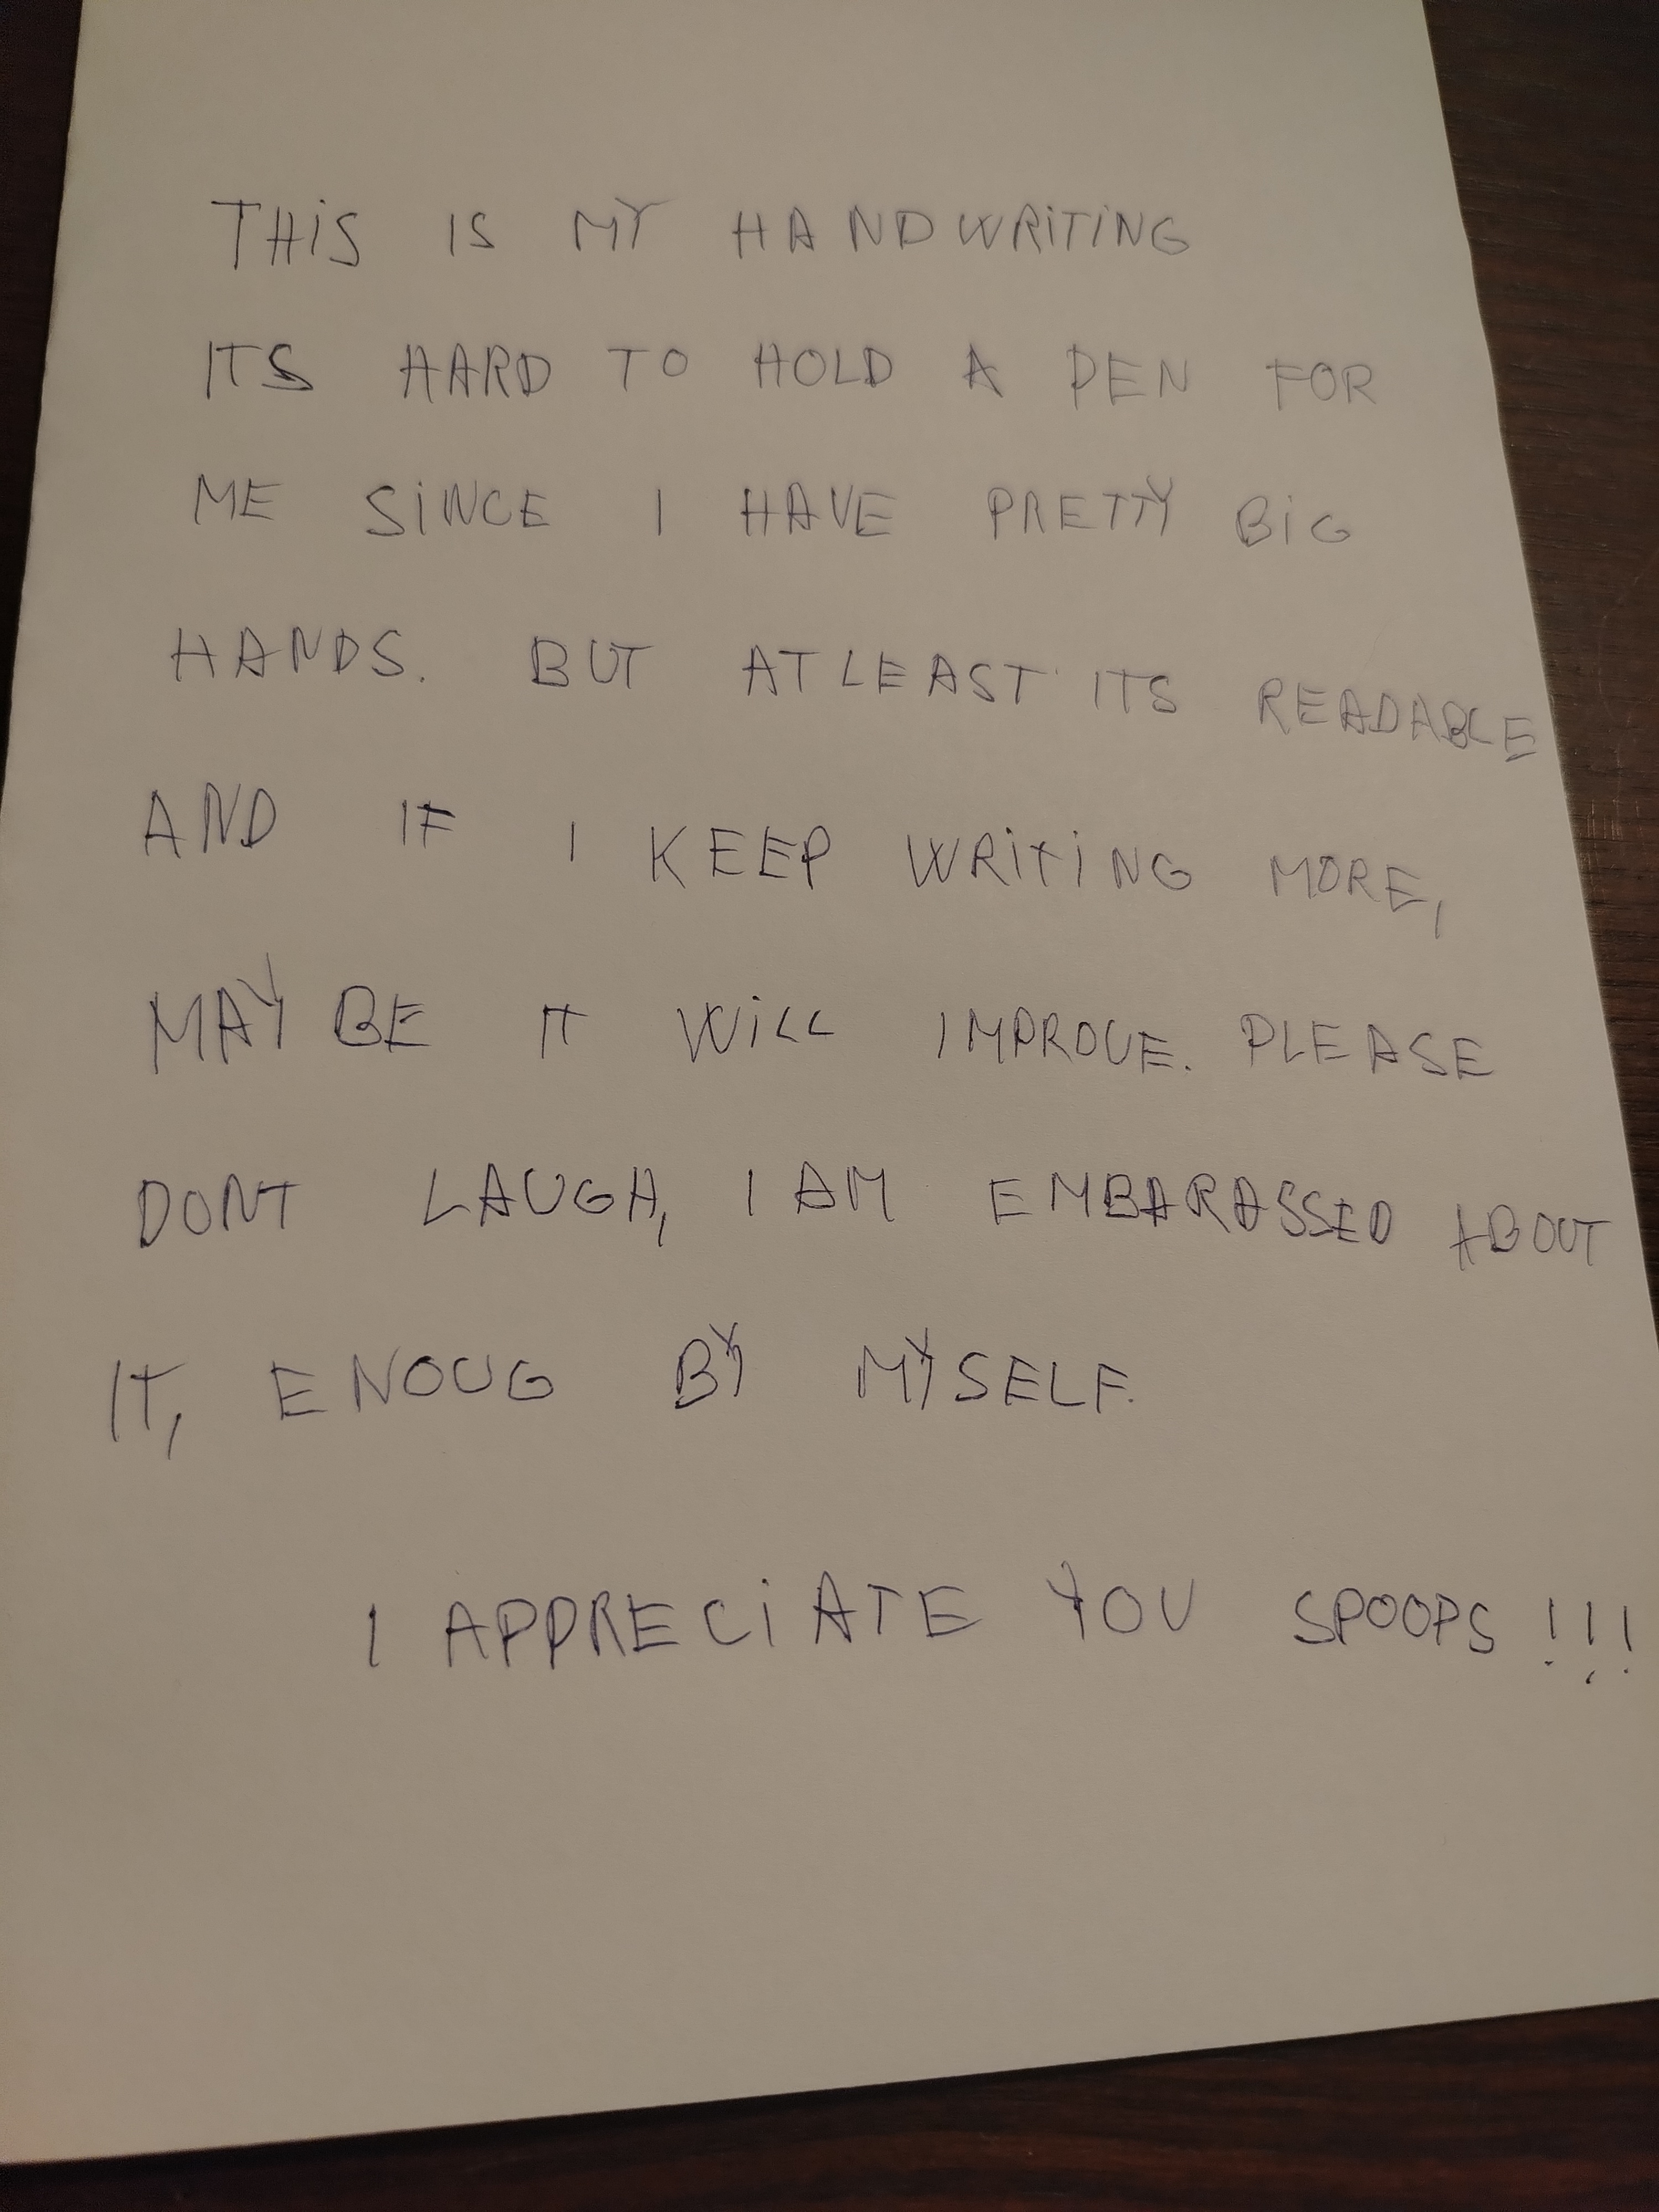 THiS IS MY HANDWRiTiNG
ITS HARD TO HOLD A PEN FOR
ME SiNCE I HAVE PRETTY BiG
HANDS. BUT ATLEAST ITS READABLE
AND IF I KEEP WRiTiNG MORE,
MAYBE IT WiLL IMPROVE. PLEASE
DONT LAUGH, I AM EMBARASSED ABOUT
IT, ENOUG BY MYSELF.
I APPRECiATE YOU SPOOPS!!!